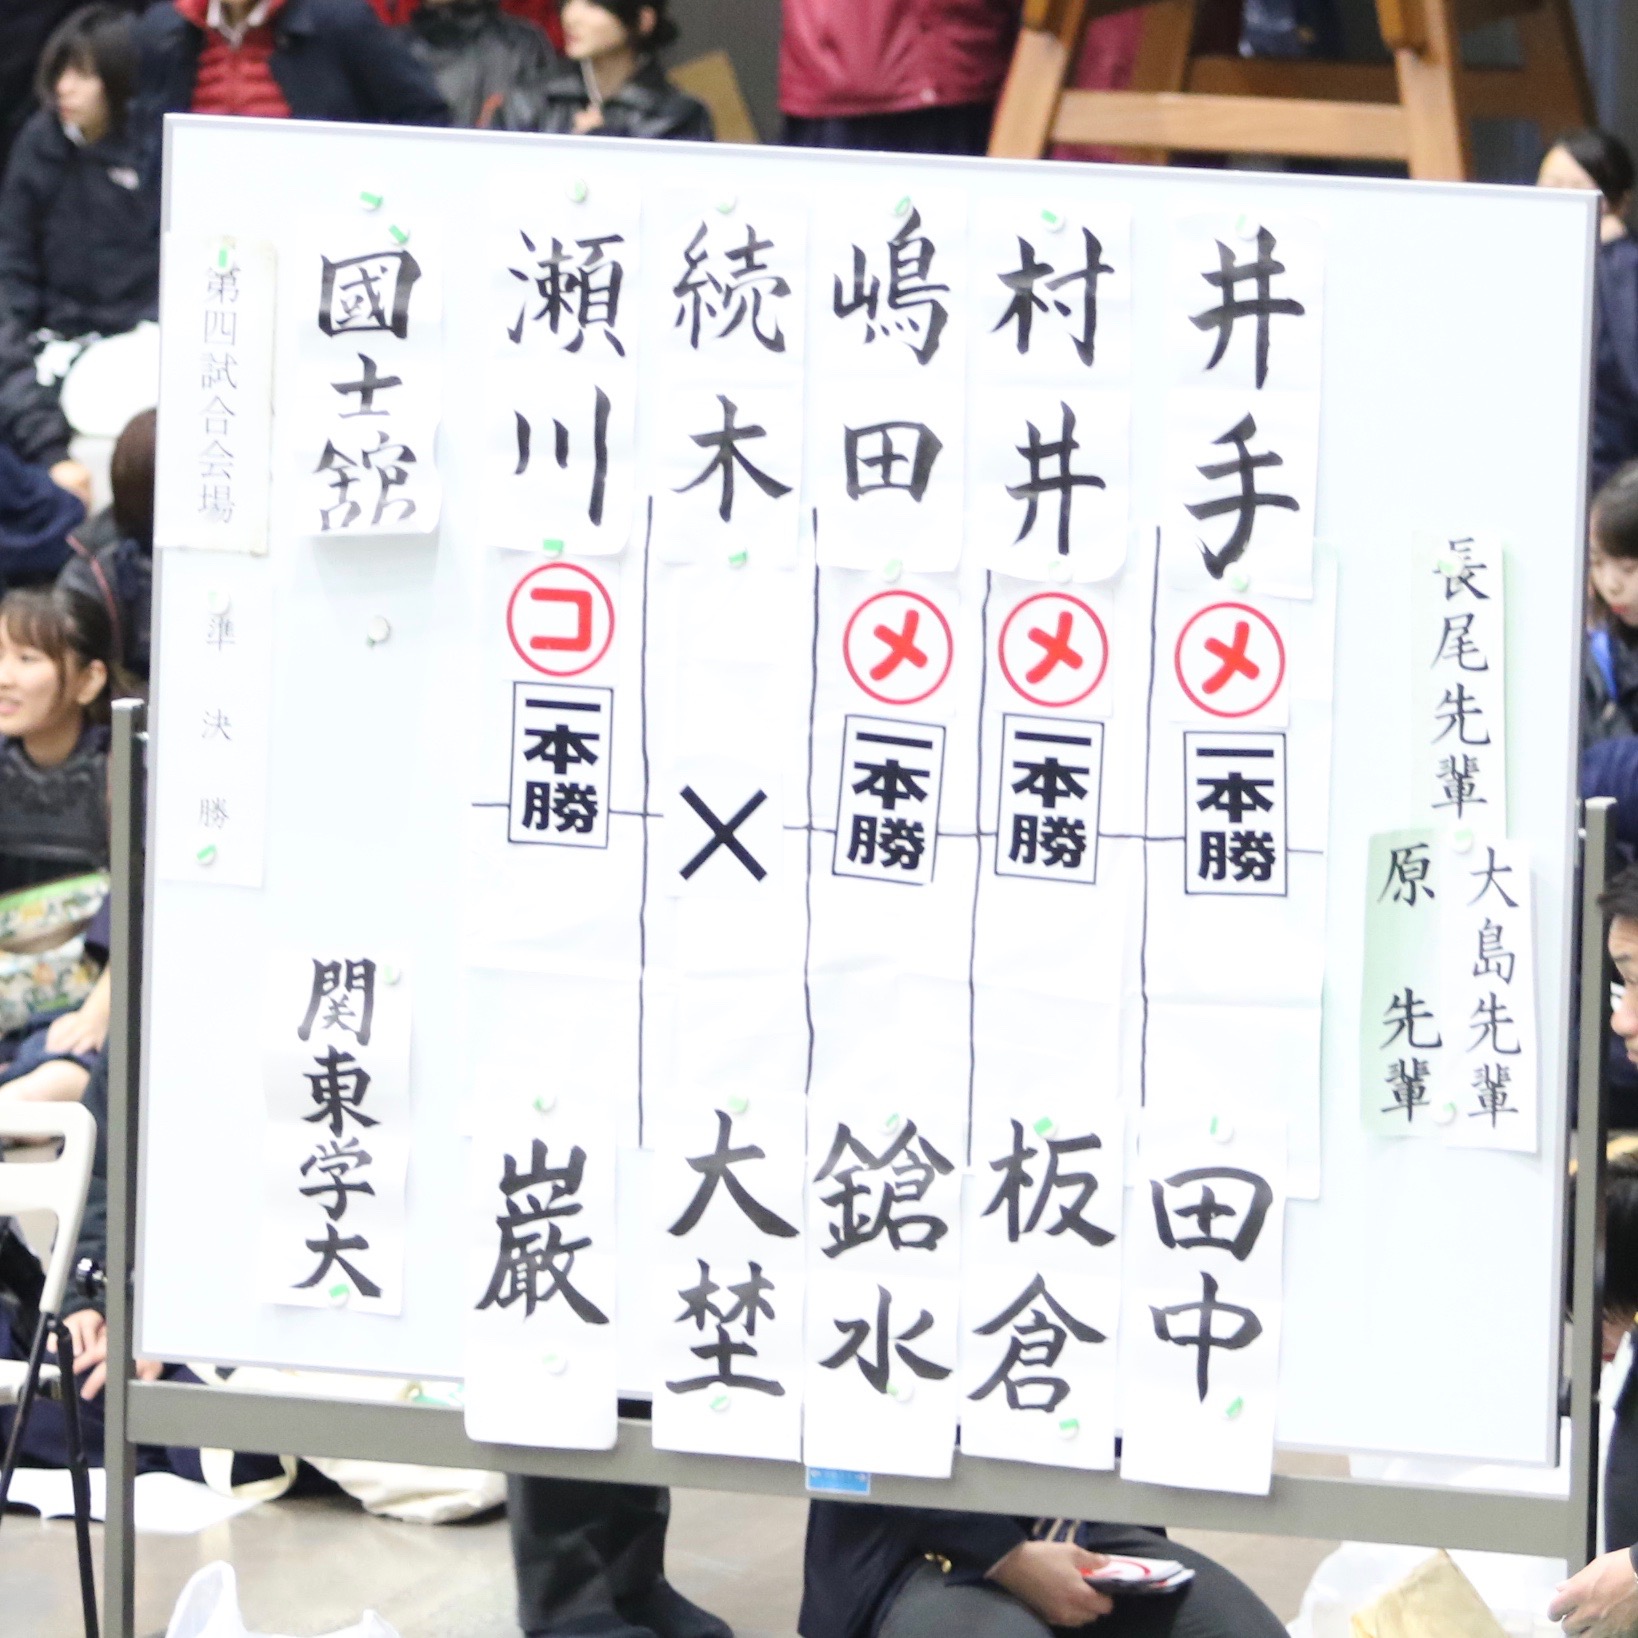 長尾先輩
大島先輩
原先輩
井手
メ
一本勝
田中
村井
メ
一本勝
板倉
嶋田
メ
一本勝
鎗水
続木
×
大埜
瀬川
コ
一本勝
巌
國士舘
関東学大
第四試合会場
準決勝